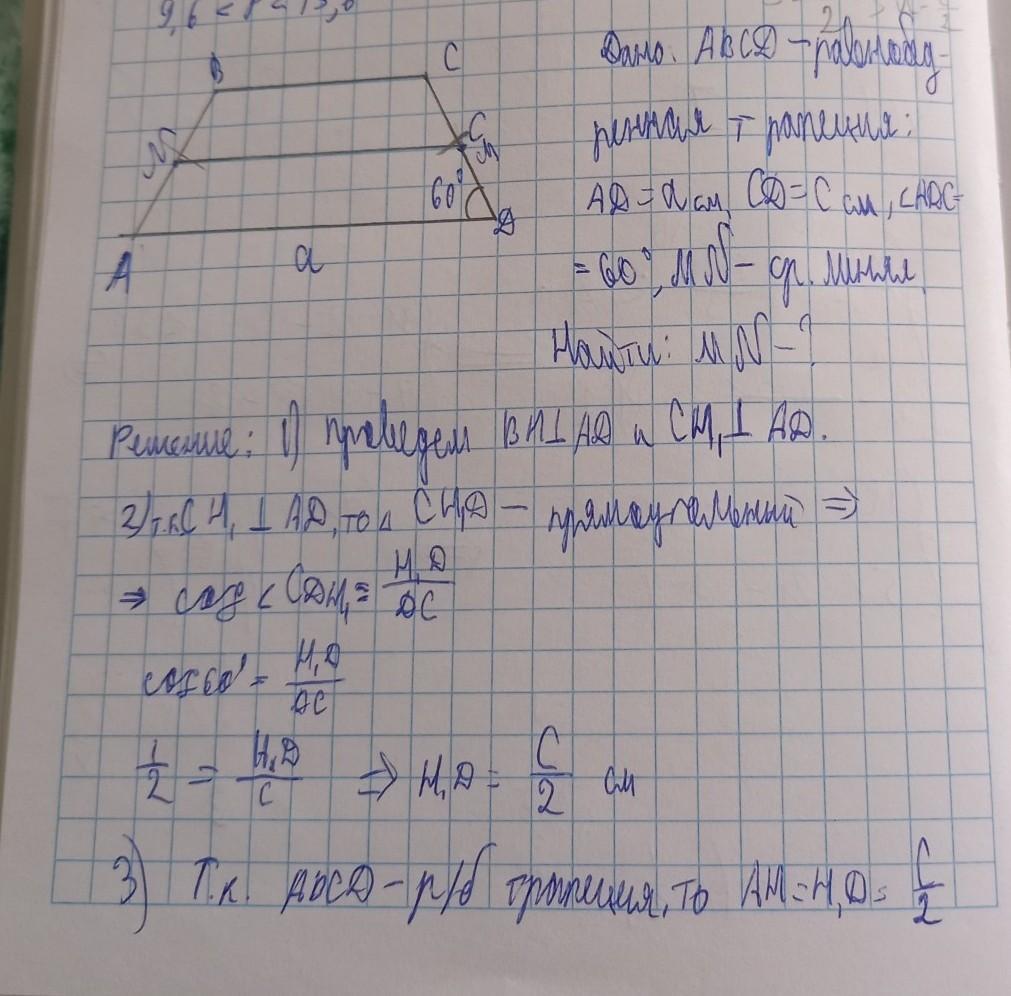 9,6 < P <
B
C
N
C
M
60°
A
a
D
Дано: ABCD – равнобед-
ренная трапеция:
AD = a см, CD = C см, ∠ADC=
= 60°, MN – ср. линия
Найти: MN – ?
Решение: 1) проведем BH⊥AD и CH₁⊥ AD.
2) т.к CH₁ ⊥ AD, то △ CH₁D – прямоугольный ⇒
⇒ cos ∠ CDH₁ = H₁D/DC
cos60° = H₁D/DC
1/2 = H₁D/C ⇒ H₁D = C/2 см
3) Т.к. ABCD – р/б трапеция, то AH = H₁D = C/2